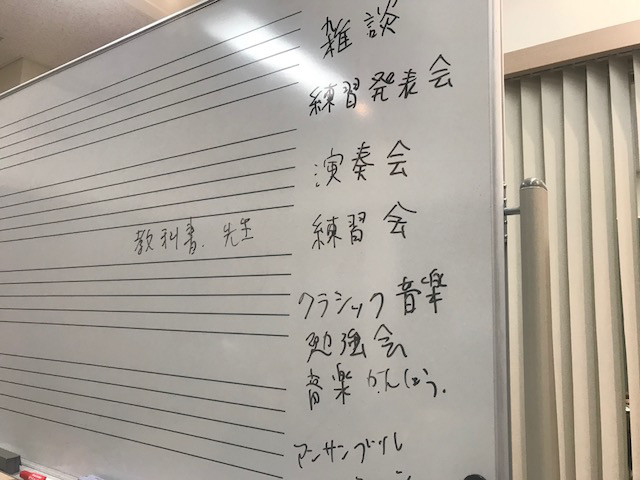 雑談
練習発表会
演奏会
練習会
教科書、先生
クラシック音楽
勉強会
音楽かんしょう.
アンサンブル